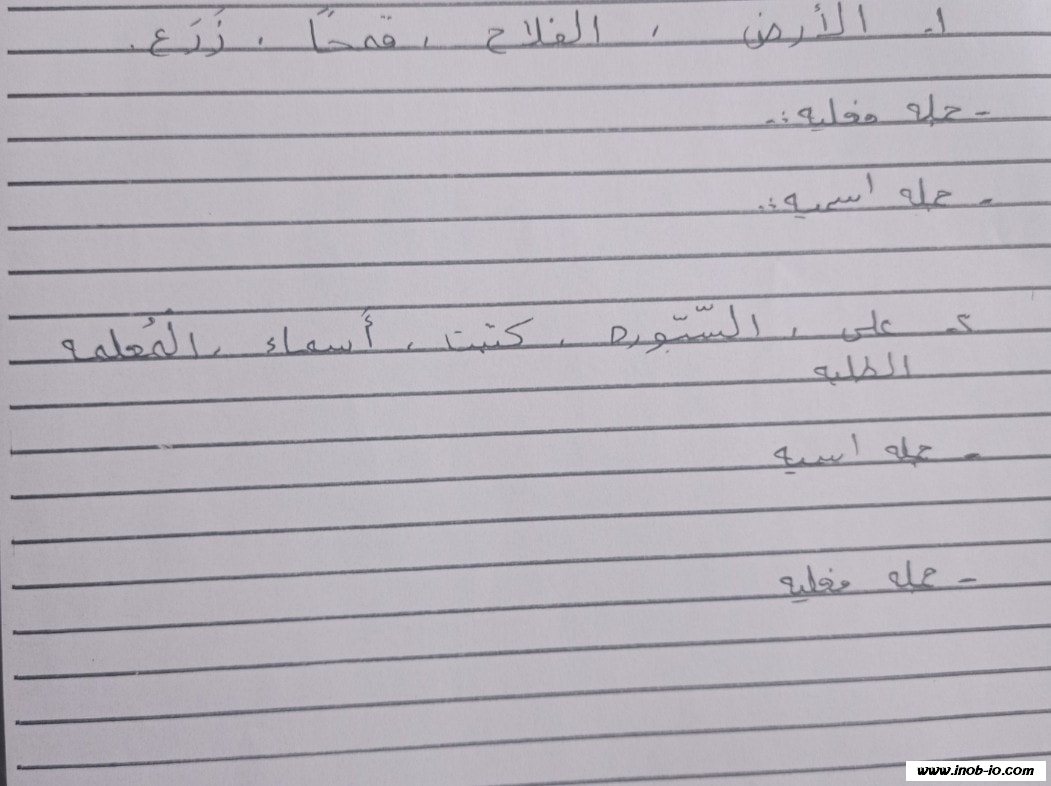 ١. الأرض ، الفلاح ، قمحًا ، زَرَع .
- جمله فعليه :.
- جمله اسميه :.
٢. على ، السّبّوره ، كتبت ، أسماء ، المُعلمه
الطلبه
- جمله اسميه
- جمله فعليه
www.inob-io.com